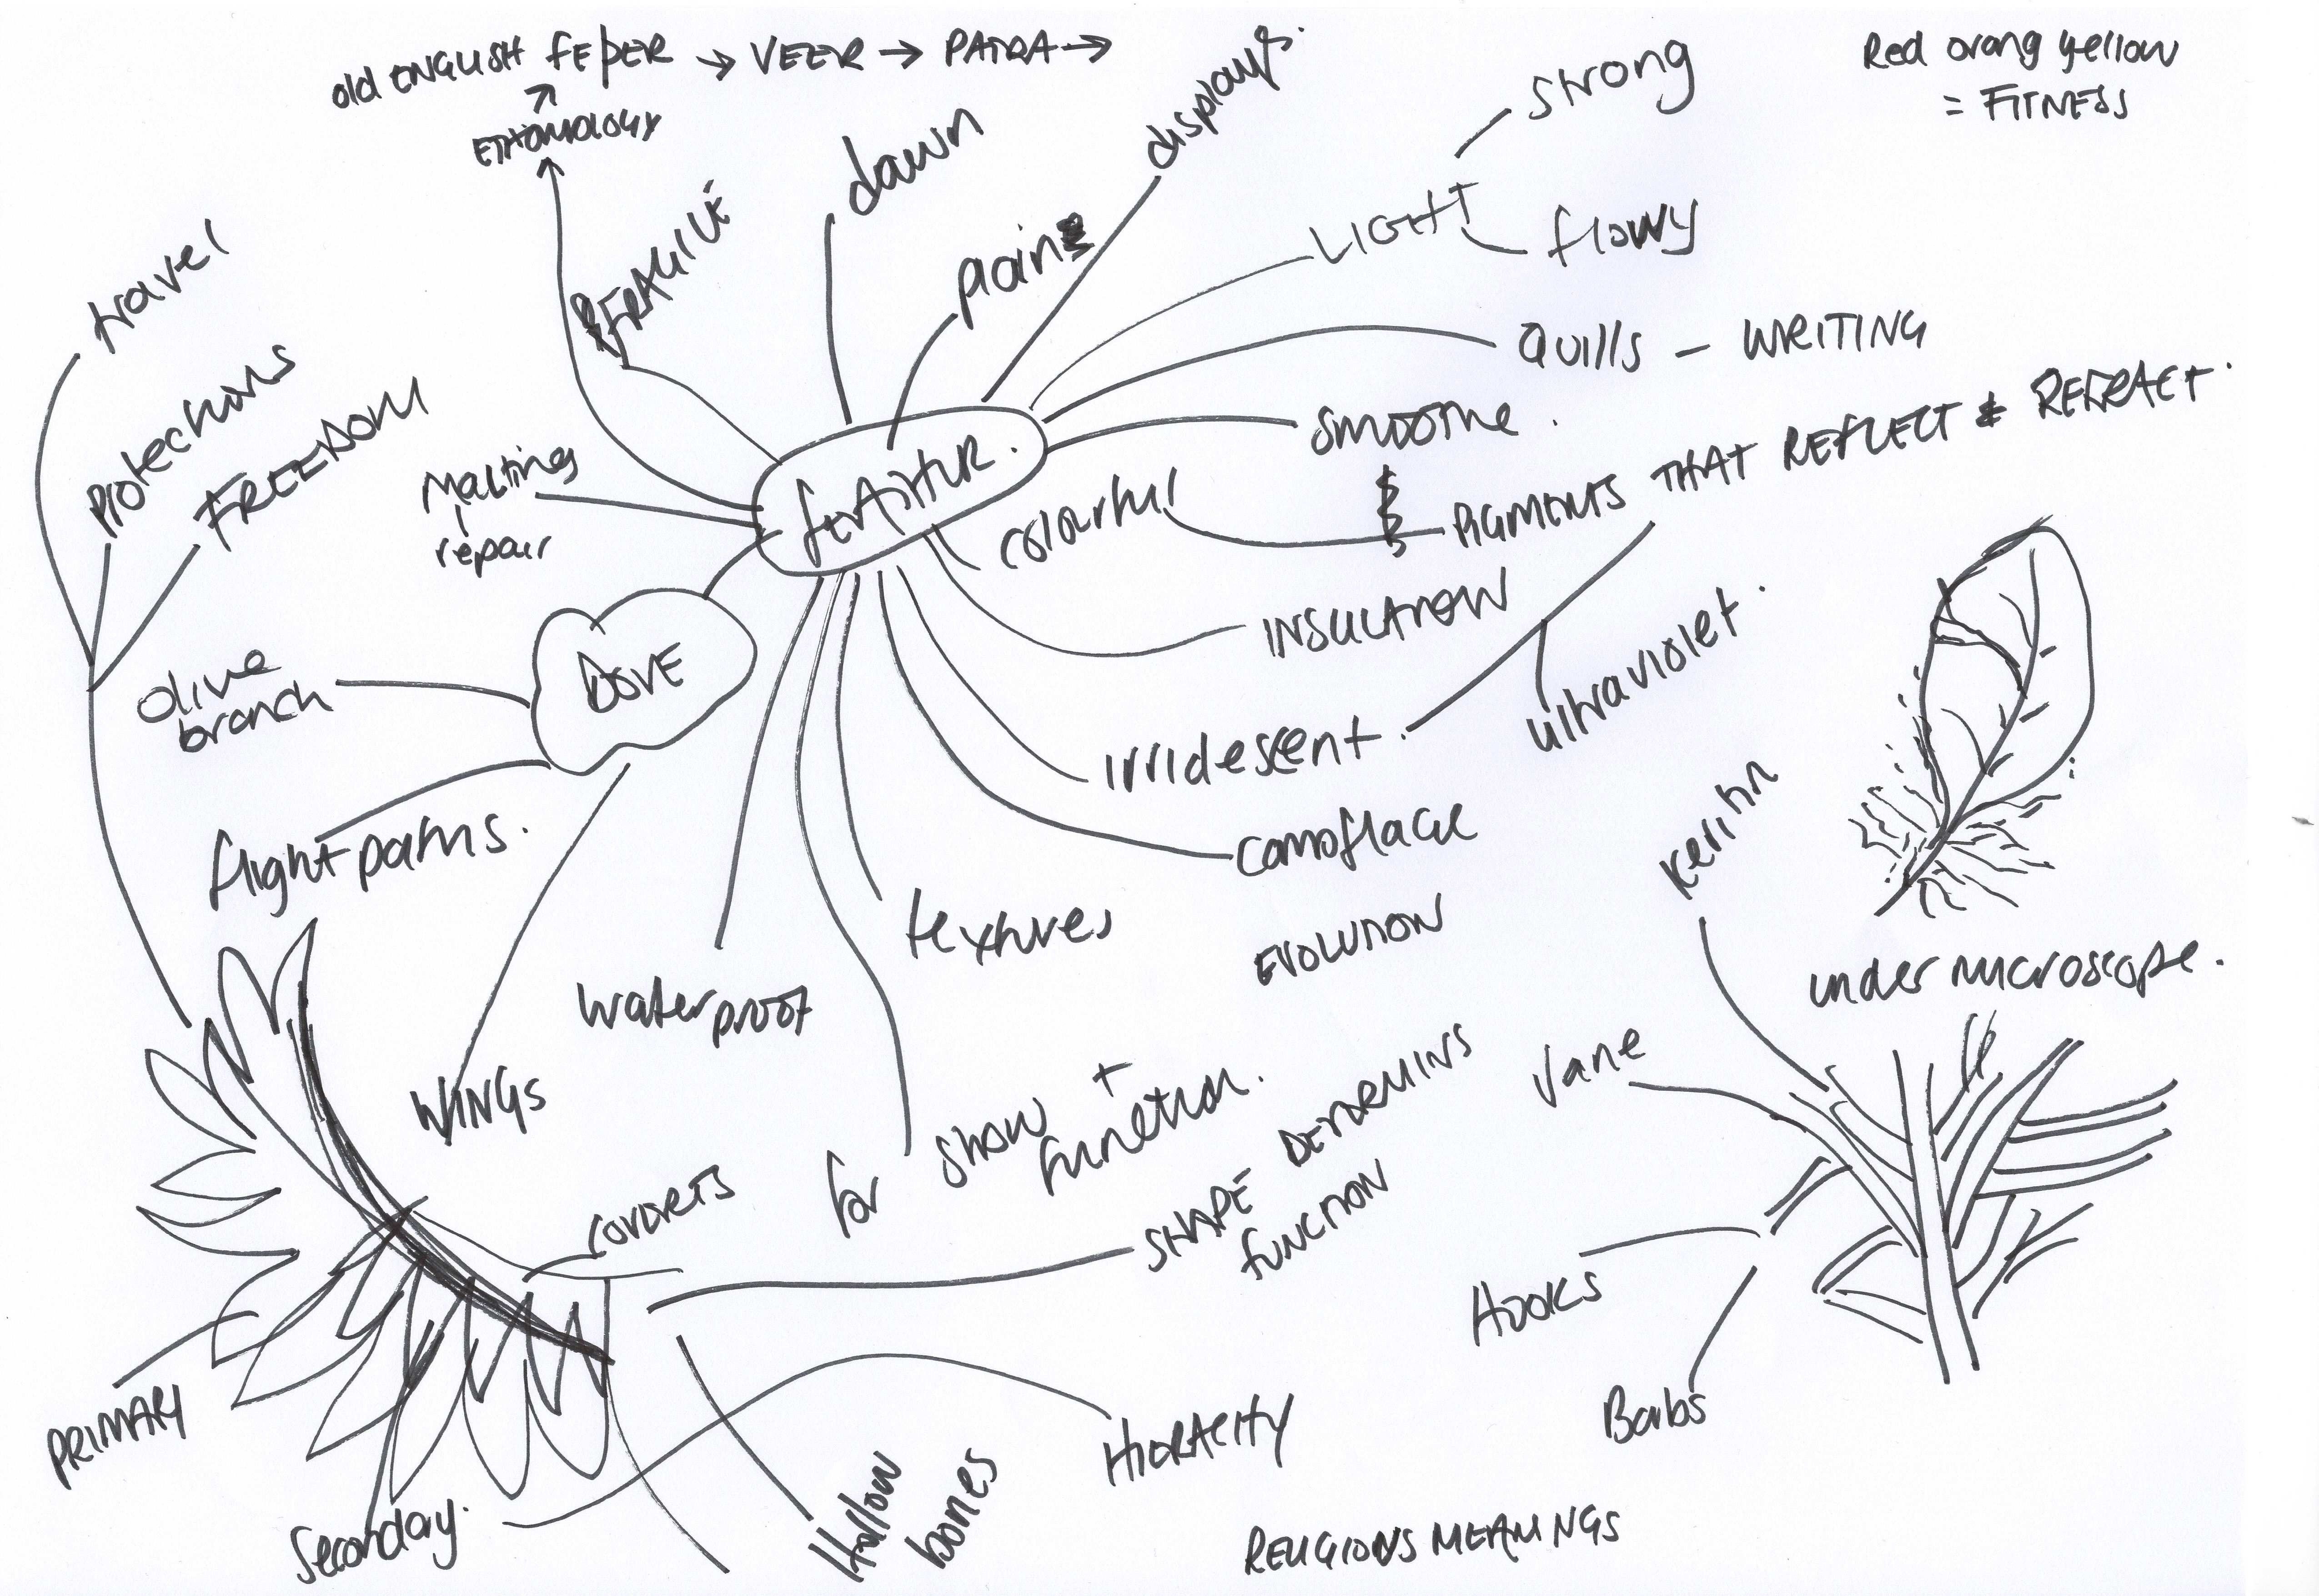 old ENGLISH FEþER → VEER → PATRA →
ETHOMOLOGY
display
strong
Red orang yellow
= FITNESS
dawn
FRAGILE
plain
LIGHT
flowy
travel
Quills - WRITING
protections
FREEDOM
smoothe.
Malting
repair
feAtHUR.
colourful
PIGMENTS THAT REFLECT & REFRACT.
DOVE
INSULATION
Olive
branch
ultraviolet.
irridescent.
flight paths.
camoflage
keritin
textures
EVOLUTION
under microscope.
waterproof
WINGS
Vane
for show + function.
COVORETS
SHAPE DETORMINS
FUNCTION
HOOKS
Barbs
PRIMARY
HIORACITY
Secondary.
Hollow
bones
RELIGIONS MEANINGS